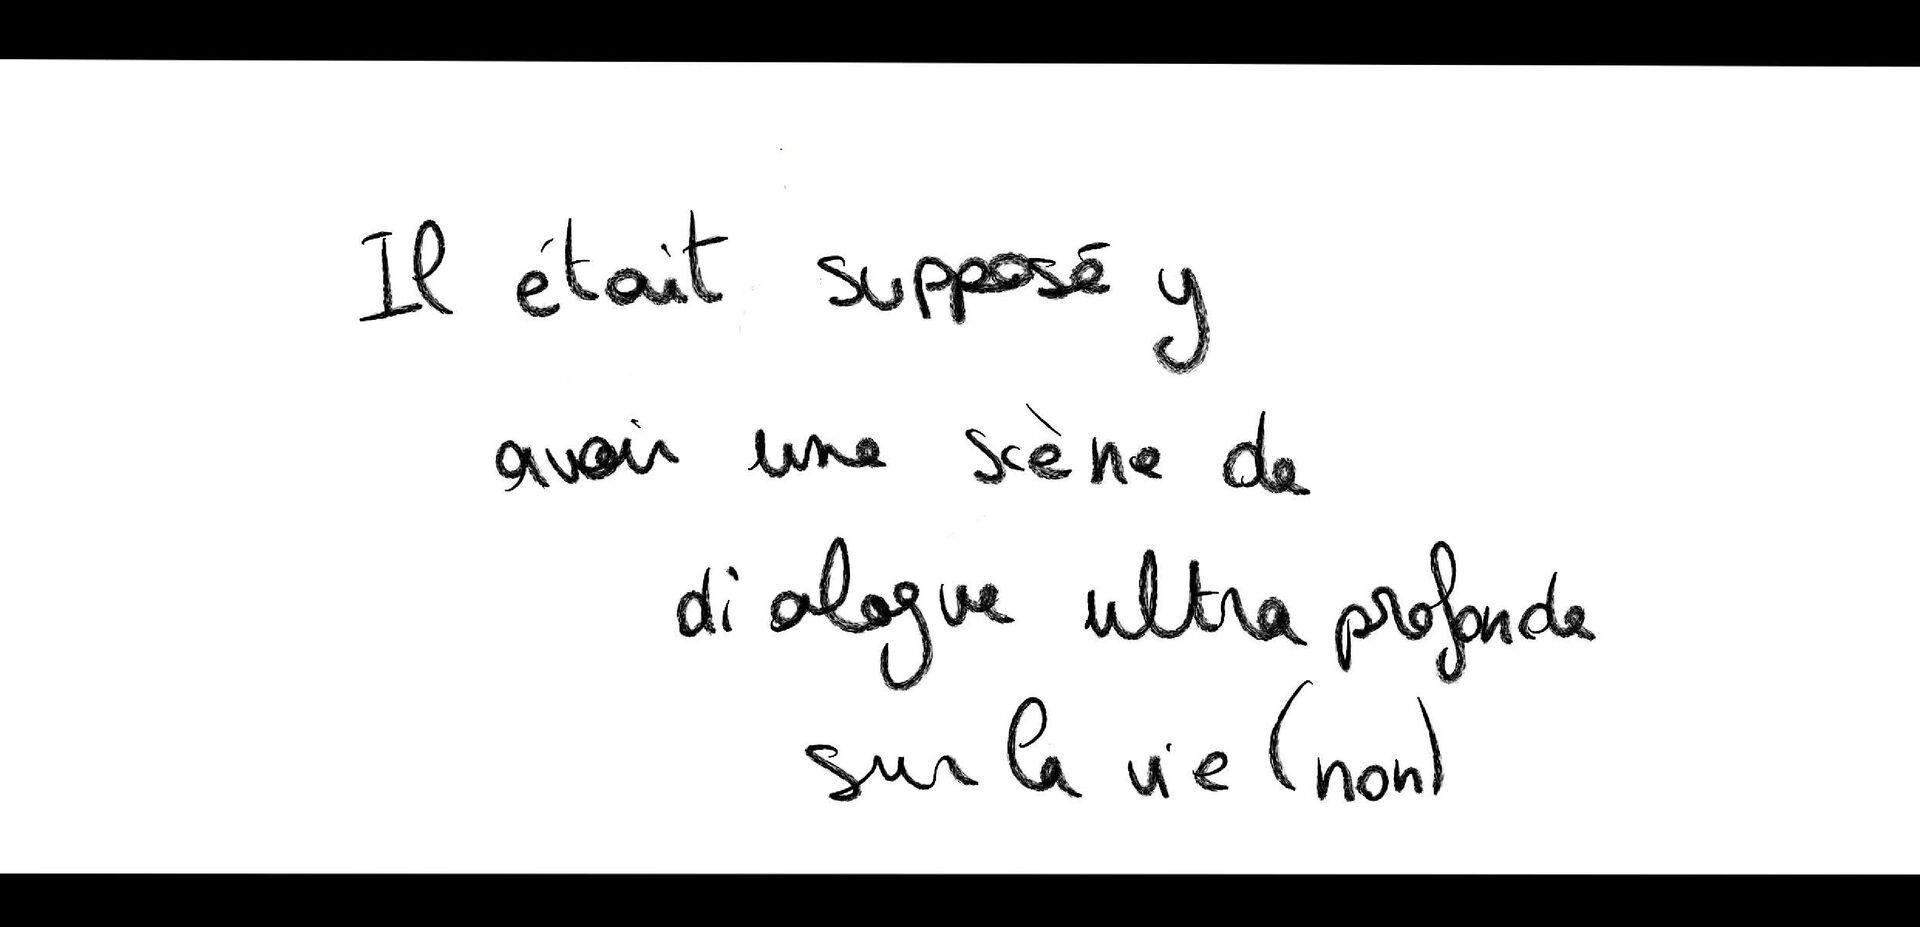 Il était supposé y
avoir une scène de
dialogue ultra profonde
sur la vie (non)